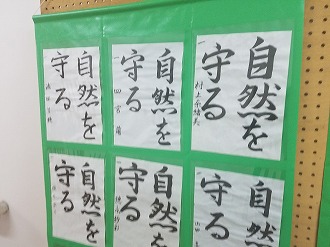 自然を
守る
自然を
守る
自然を
守る
自然を
守る
自然を
守る
自然を
守る